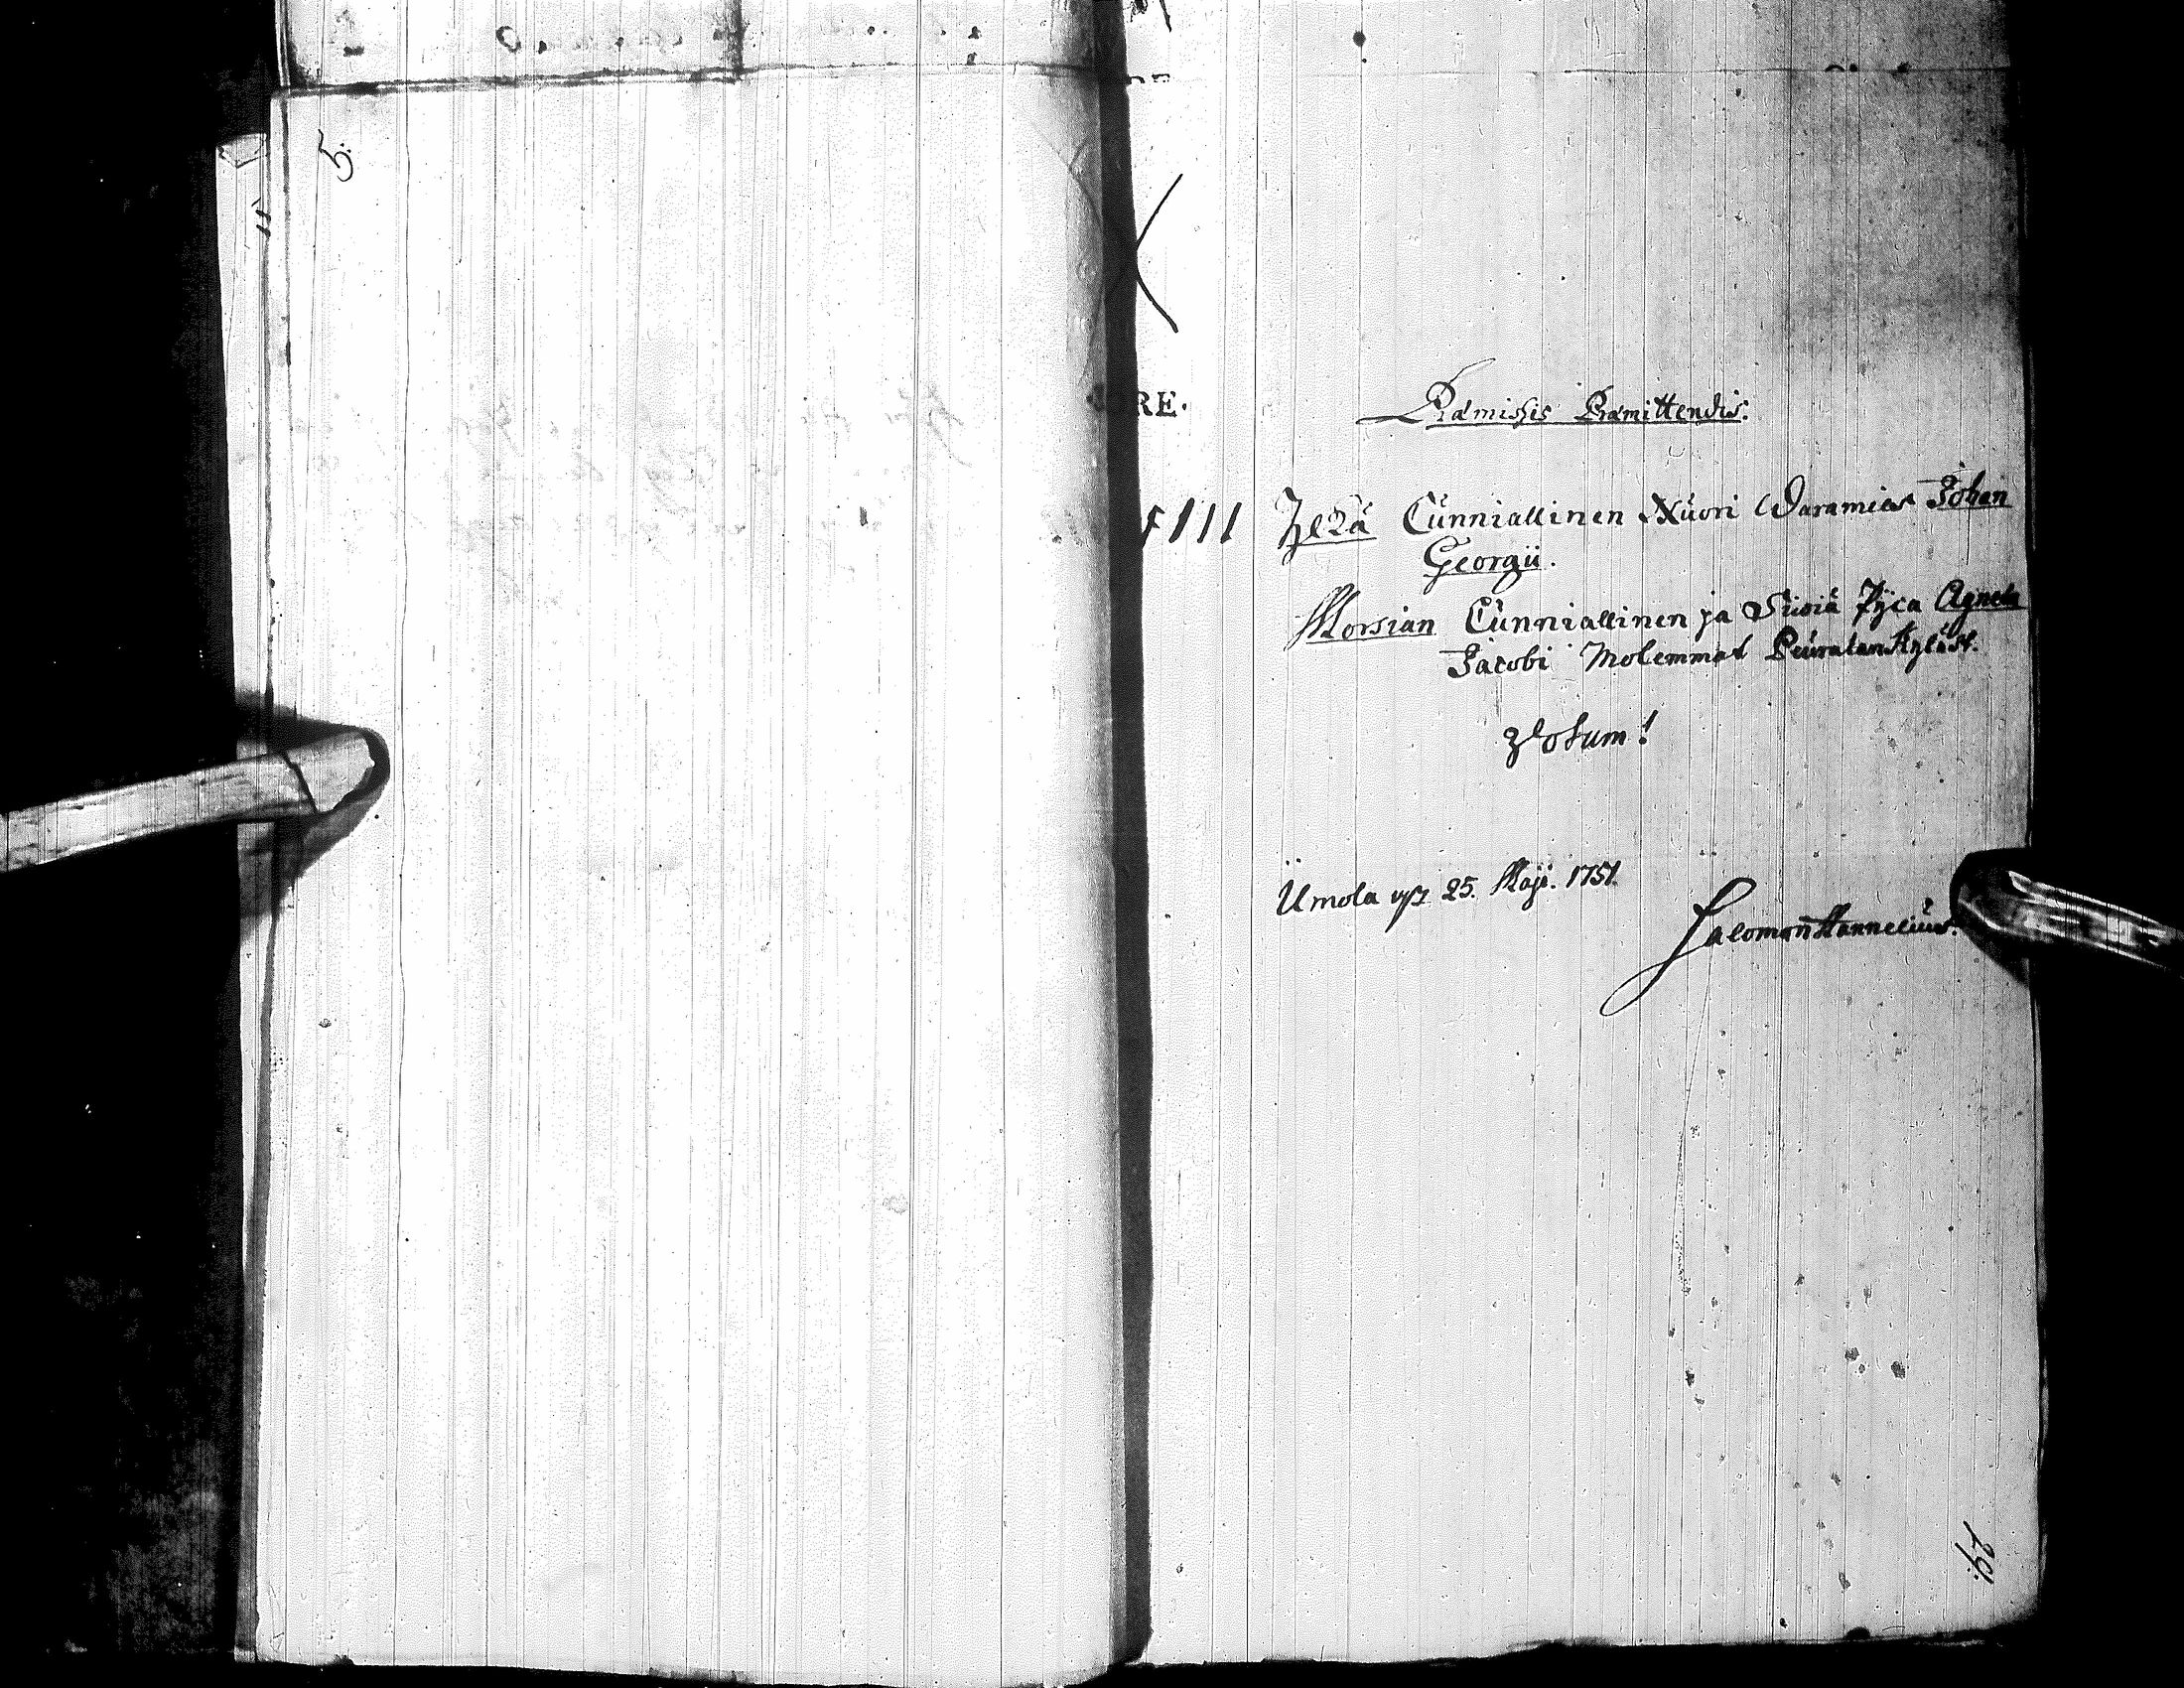 5.
RE.
Præmissis Præmittendis.
Ylkä Cünniallinen Nuori Waramies Johan
Georgii.
Morsian Cünniallinen ja Siwiä Pijca Agneta
Jacobi Molemmat Peuralan Kyläst.
Votum!
Umola 25. Maji. 1751.
Salomon Hannelius.